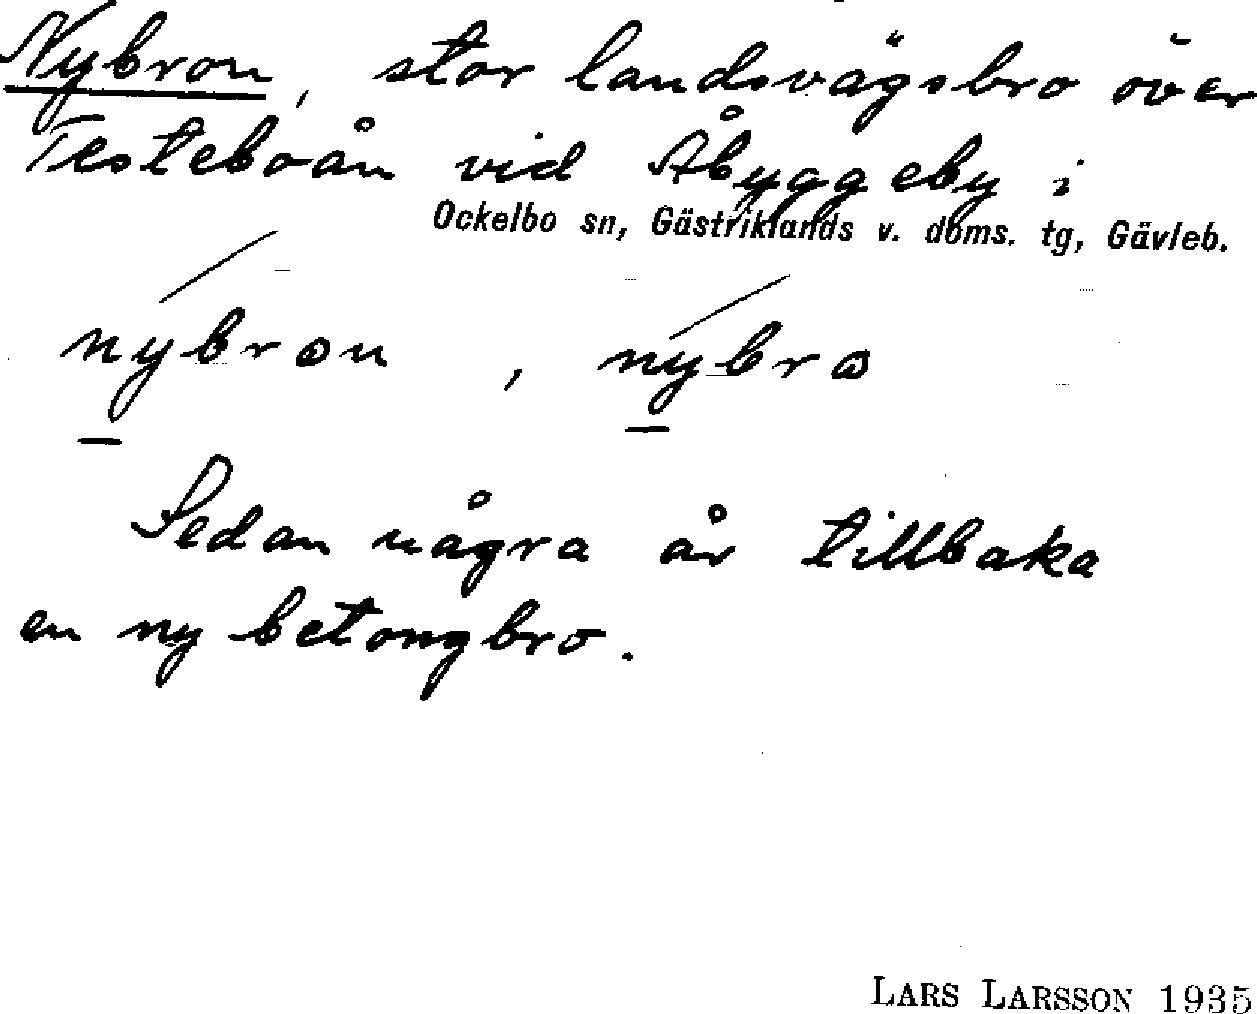 Nybron, stor landsvägsbro över
Testeboån vid Åbyggeby i
Ockelbo sn, Gästriklands v. doms. tg, Gävleb.
nybron, nybro
Sedan några år tillbaka
en ny betongbro.
LARS LARSSON 1935